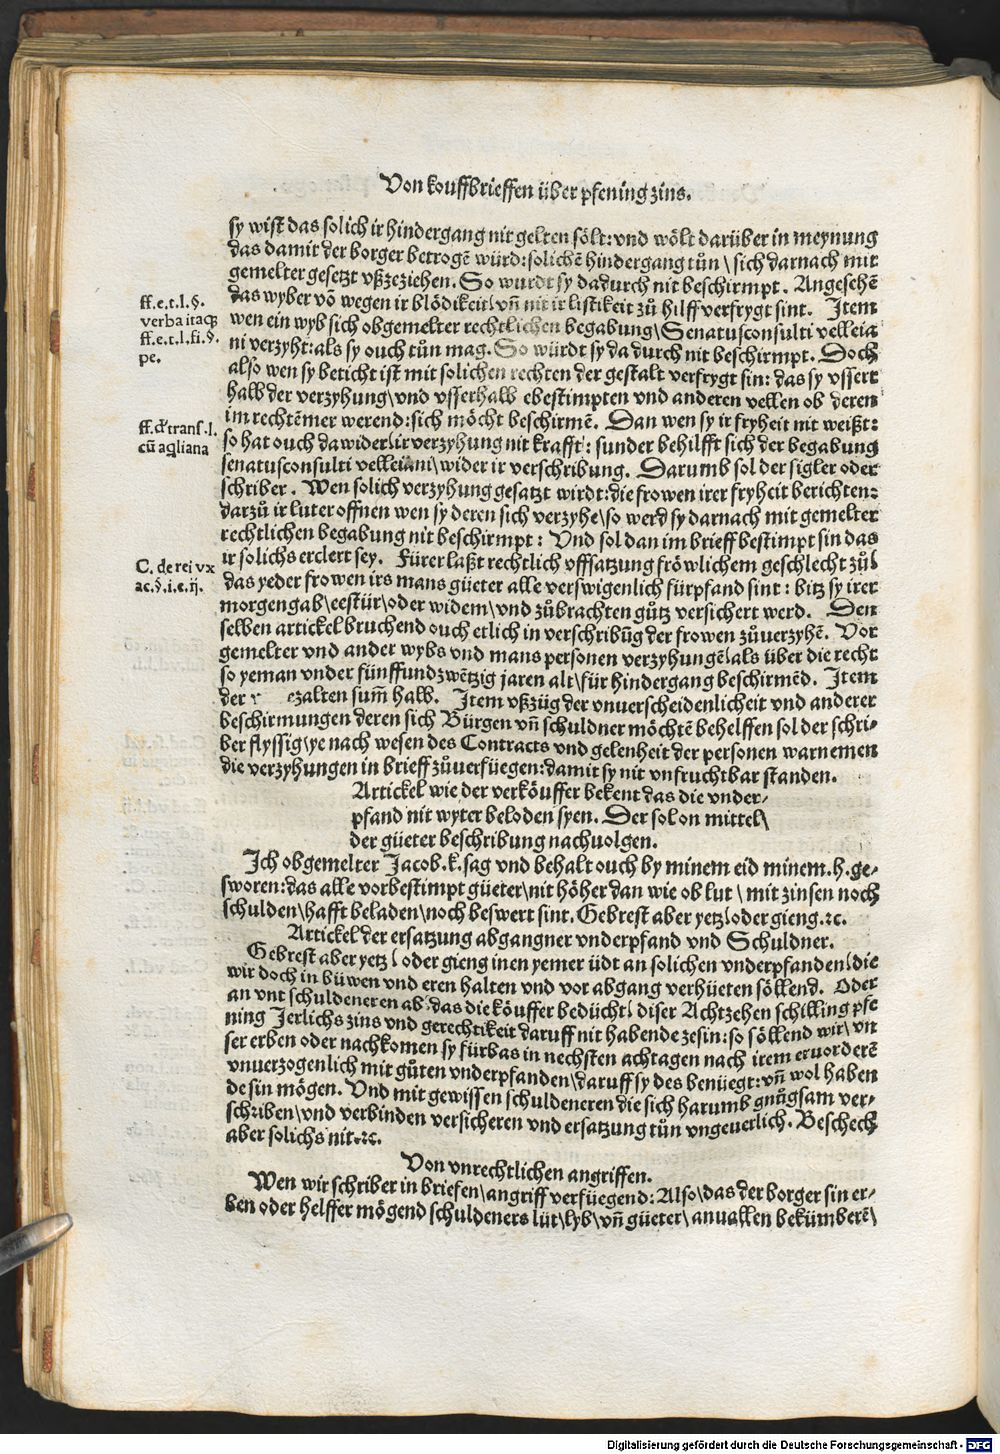 Von kouffbrieffen über pfening zins.
sy wist das solich ir hindergang nit gelten sölt: vnd wölt darüber in meynung
das damit der borger betrogē würd: solichē hindergang tůn \ sich darnach mit
gemelter gesetzt vßzeziehen. So wurdt sy dadurch nit beschirmpt. Angesehē
das wyber vō wegen ir blödikeit \ vn̄ nit ir listikeit zů hilff verfrygt sint. Item
wen ein wyb sich obgemelter rechtlichen begabung \ Senatusconsulti velleia
ni verzyht: als sy ouch tůn mag. So würdt sy da durch nit beschirmpt. Doch
also wen sy beticht ist mit solichen rechten der gestalt verfrygt sin: das sy vssert
halb der verzyhung \ vnd vsserhalb ebestimpten vnd anderen vellen ob deren
im rechtē mer werend: sich möcht beschirmē. Dan wen sy ir fryheit nit weißt:
so hat ouch dawider \ ir verzyhung nit krafft: sunder behilfft sich der begabung
senatusconsulti velleiani \ wider ir verschribung. Darumb sol der sigler oder
schriber. Wen solich verzyhung gesatzt wirdt: die frowen irer fryheit berichten:
darzů ir luter offnen wen sy deren sich verzyhe \ so werd sy darnach mit gemelter
rechtlichen begabung nit beschirmpt: Vnd sol dan im brieff bestimpt sin das
ir solichs erclert sey. Fürer laßt rechtlich vffsatzung fröwlichem geschlecht zů \
das yeder frowen irs mans güeter alle verswigenlich fürpfand sint: bitz sy irer
morgengab \ eestür \ oder widem \ vnd zůbrachten gůtz versichert werd. Den
selben artickel bruchend ouch etlich in verschribūg der frowen zůuerzyhē. Vor
gemelter vnd ander wybs vnd mans personen verzyhungē \ als über die recht
so yeman vnder fünffundzwētzig jaren alt \ für hindergang beschirmēd. Item
der ezalten sum̄ halb. Item vßzüg der vnuerscheidenlicheit vnd anderer
beschirmungen deren sich Bürgen vn̄ schuldner möchtē behelffen sol der schri-
ber flyssig \ ye nach wesen des Contracts vnd gelenheit der personen warnemen
die verzyhungen in brieff zůuerfüegen: damit sy nit vnfruchtbar standen.
Artickel wie der verköuffer bekent das die vnder-
pfand nit wyter beloden syen. Der sol on mittel \
der güeter beschribung nachuolgen.
Ich obgemelter Jacob. k. sag vnd behalt ouch by minem eid minem. h. ge-
sworen: das alle vorbestimpt güeter \ nit höher dan wie ob lut \ mit zinsen noch
schulden \ hafft beladen \ noch beswert sint. Gebrest aber yetz \ oder gieng. ꝛc.
Artickel der ersatzung abgangner vnderpfand vnd Schuldner.
Gebrest aber yetz \ oder gieng inen yemer üdt an solichen vnderpfanden \ die
wir doch in büwen vnd eren halten vnd vor abgang verhüeten söllend. Oder
an vnt schuldeneren ab: das die köuffer bedücht \ diser Achtzehen schilling pfe
ning Jerlichs zins vnd gerechtikeit daruff nit habende ze sin: so söllend wir \ vn
ser erben oder nachkomen sy fürbas in nechsten achtagen nach irem eruorderē
vnuerzogenlich mit gůten vnderpfanden \ daruff sy des benüegt: vn̄ wol haben
de sin mögen. Vnd mit gewissen schuldeneren die sich harumb gnůgsam ver-
schriben \ vnd verbinden versicheren vnd ersatzung tůn vngeuerlich. Beschech
aber solichs nit. ꝛc.
Von vnrechtlichen angriffen.
Wen wir schriber in briefen \ angriff verfüegend: Also \ das der borger sin er-
ben oder helffer mögend schuldeners lüt \ lyb \ vn̄ güeter \ anuallen bekümberē \
ff. e. t. l. §.
verba itaqꝫ
ff. e. t. l. fi. §.
pe.
ff. đ trans. l.
cū aqliana
C. de rei vx
ac. §. i. e. ij.
Digitalisierung gefördert durch die Deutsche Forschungsgemeinschaft - DFG